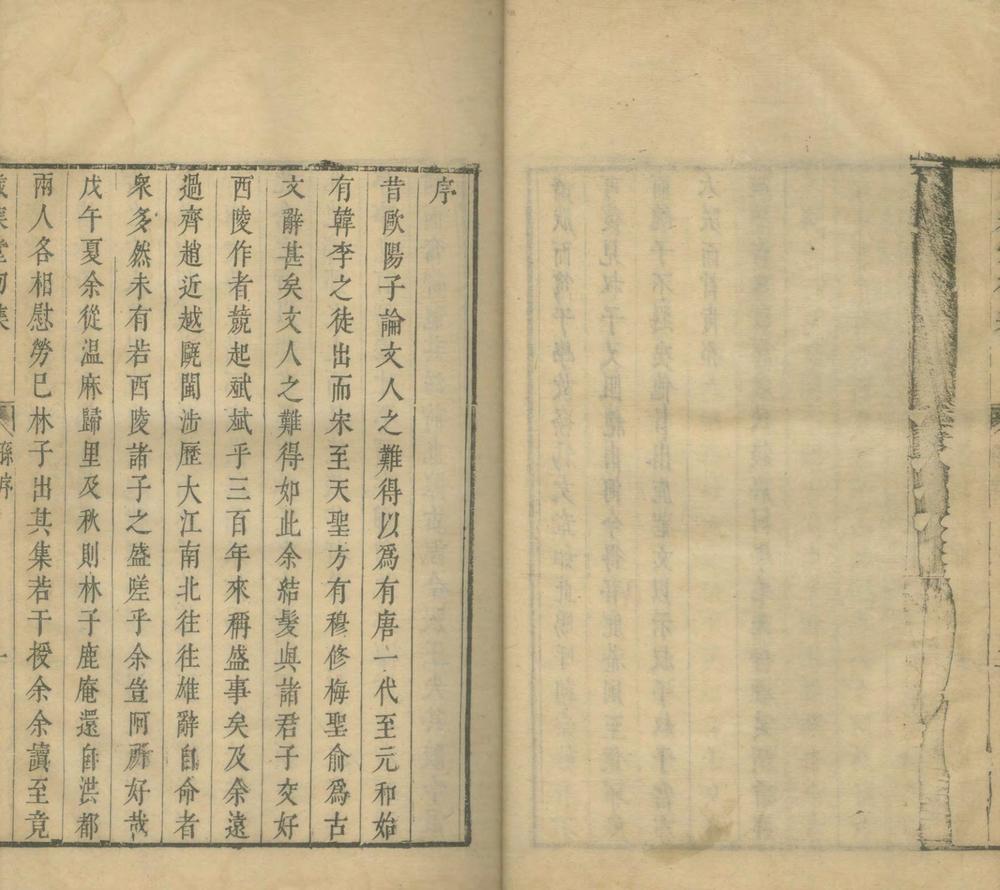 序
昔歐陽子論文人之難得以爲有唐一代至元和始
有韓李之徒出而宋至天聖方有穆修梅聖俞爲古
文辭甚矣文人之難得如此余結髮與諸君子交好
西陵作者競起斌斌乎三百年來稱盛事矣及余遠
過齊趙近越甌閩涉歷大江南北往往雄辭自命者
衆多然未有若西陵諸子之盛嗟乎余豈阿所好哉
戊午夏余從温麻歸里及秋則林子鹿庵還自洪都
兩人各相慰勞已林子出其集若干授余余讀至竟
孫序
一